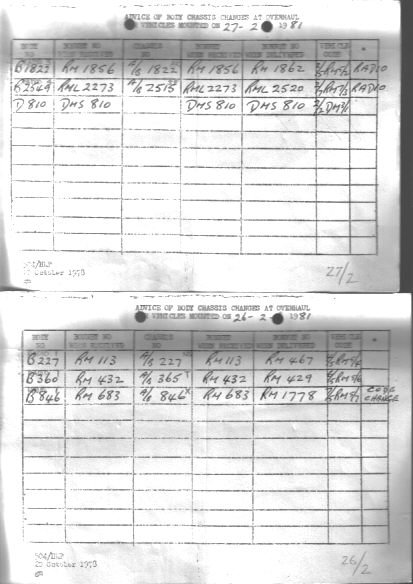 ADVICE OF BODY CHASSIS CHANGES AT OVERHAUL
VEHICLES MOUNTED ON 27-2 1981
BODY NO BONNET NO WHEN RECEIVED CHASSIS NO BONNET WHEN RECEIVED BONNET NO WHEN DELIVERED VEHICLE CODE *
B1823 RM 1856 1822 RM 1856 RM 1862 RADIO
B2549 RML 2273 2515 RML 2273 RML 2520 RADIO
D810 DMS 810 DMS 810 DMS 810
October 1978
27/2
ADVICE OF BODY CHASSIS CHANGES AT OVERHAUL
VEHICLES MOUNTED ON 26-2-1981
BODY NO BONNET NO WHEN RECEIVED CHASSIS NO BONNET WHEN RECEIVED BONNET NO WHEN DELIVERED VEHICLE CODE
B227 RM 113 227 RM 113 RM 467
B360 RM 432 365 RM 432 RM 429
B846 RM 683 846 RM 683 RM 1778 CODE CHANGE
October 1978
26/2